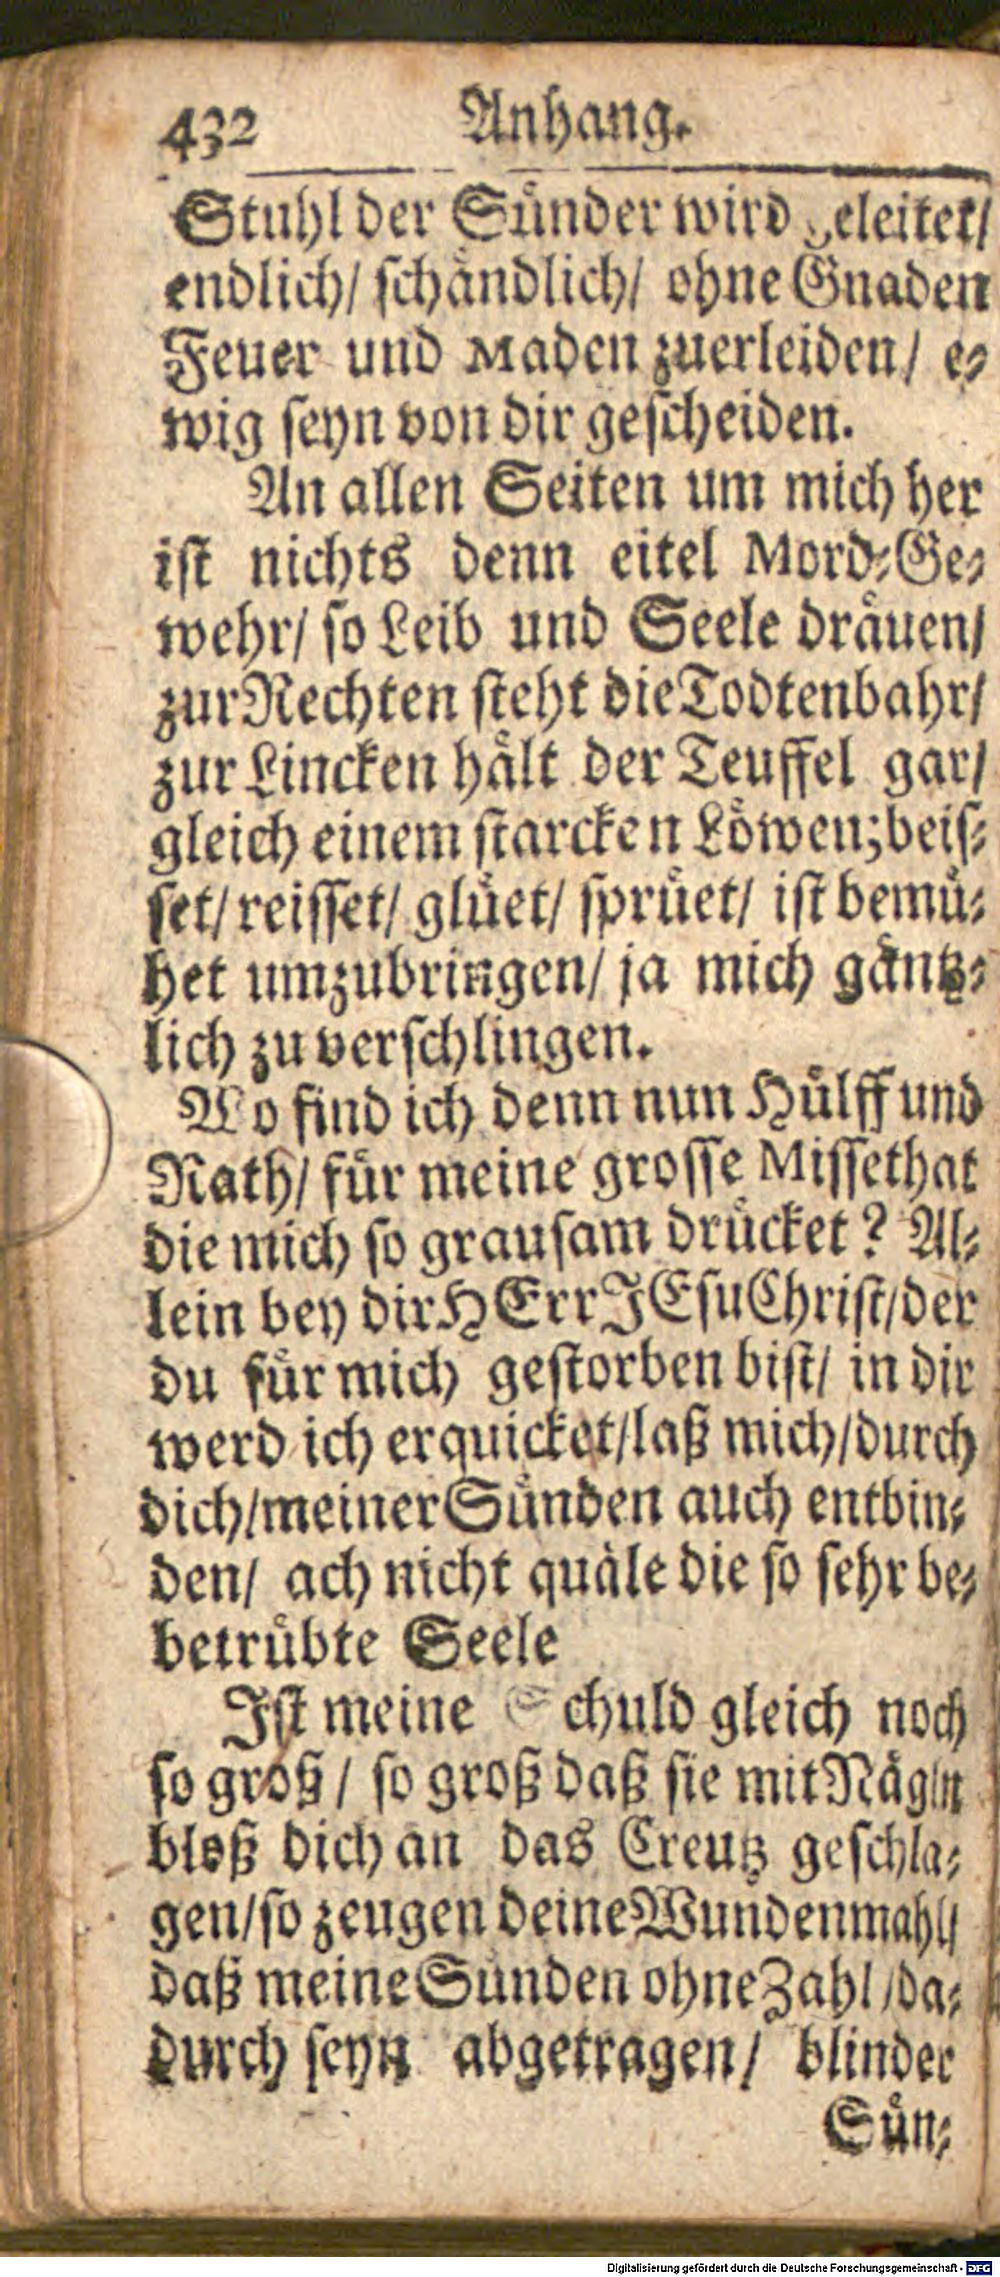 432 Anhang.
Stuhl der Sünder wird geleitet/
endlich/ schändlich/ ohne Gnaden
Feuer und Maden zuerleiden/ e-
wig seyn von dir gescheiden.
An allen Seiten um mich her
ist nichts denn eitel Mord-Ge-
wehr/ so Leib und Seele dräuen/
zur Rechten steht die Todtenbahr/
zur Lincken hält der Teuffel gar/
gleich einem starcken Löwen; beis-
set/ reisset/ glüet/ sprüet/ ist bemü-
het umzubringen/ ja mich gäntz-
lich zu verschlingen.
Wo find ich denn nun Hülff und
Rath/ für meine grosse Missethat
die mich so grausam drücket? Al-
lein bey dir HErr JEsu Christ/ der
du für mich gestorben bist/ in dir
werd ich erquicket/ laß mich/ durch
dich/ meiner Sünden auch entbin-
den/ ach nicht quäle die so sehr be-
betrübte Seele
Ist meine Schuld gleich noch
so groß/ so groß daß sie mit Nägln
bloß dich an das Creutz geschla-
gen/ so zeugen deine Wundenmahl/
daß meine Sünden ohne Zahl/ da-
durch seyn abgetragen/ blinder
Sün-
Digitalisierung gefördert durch die Deutsche Forschungsgemeinschaft - DFG